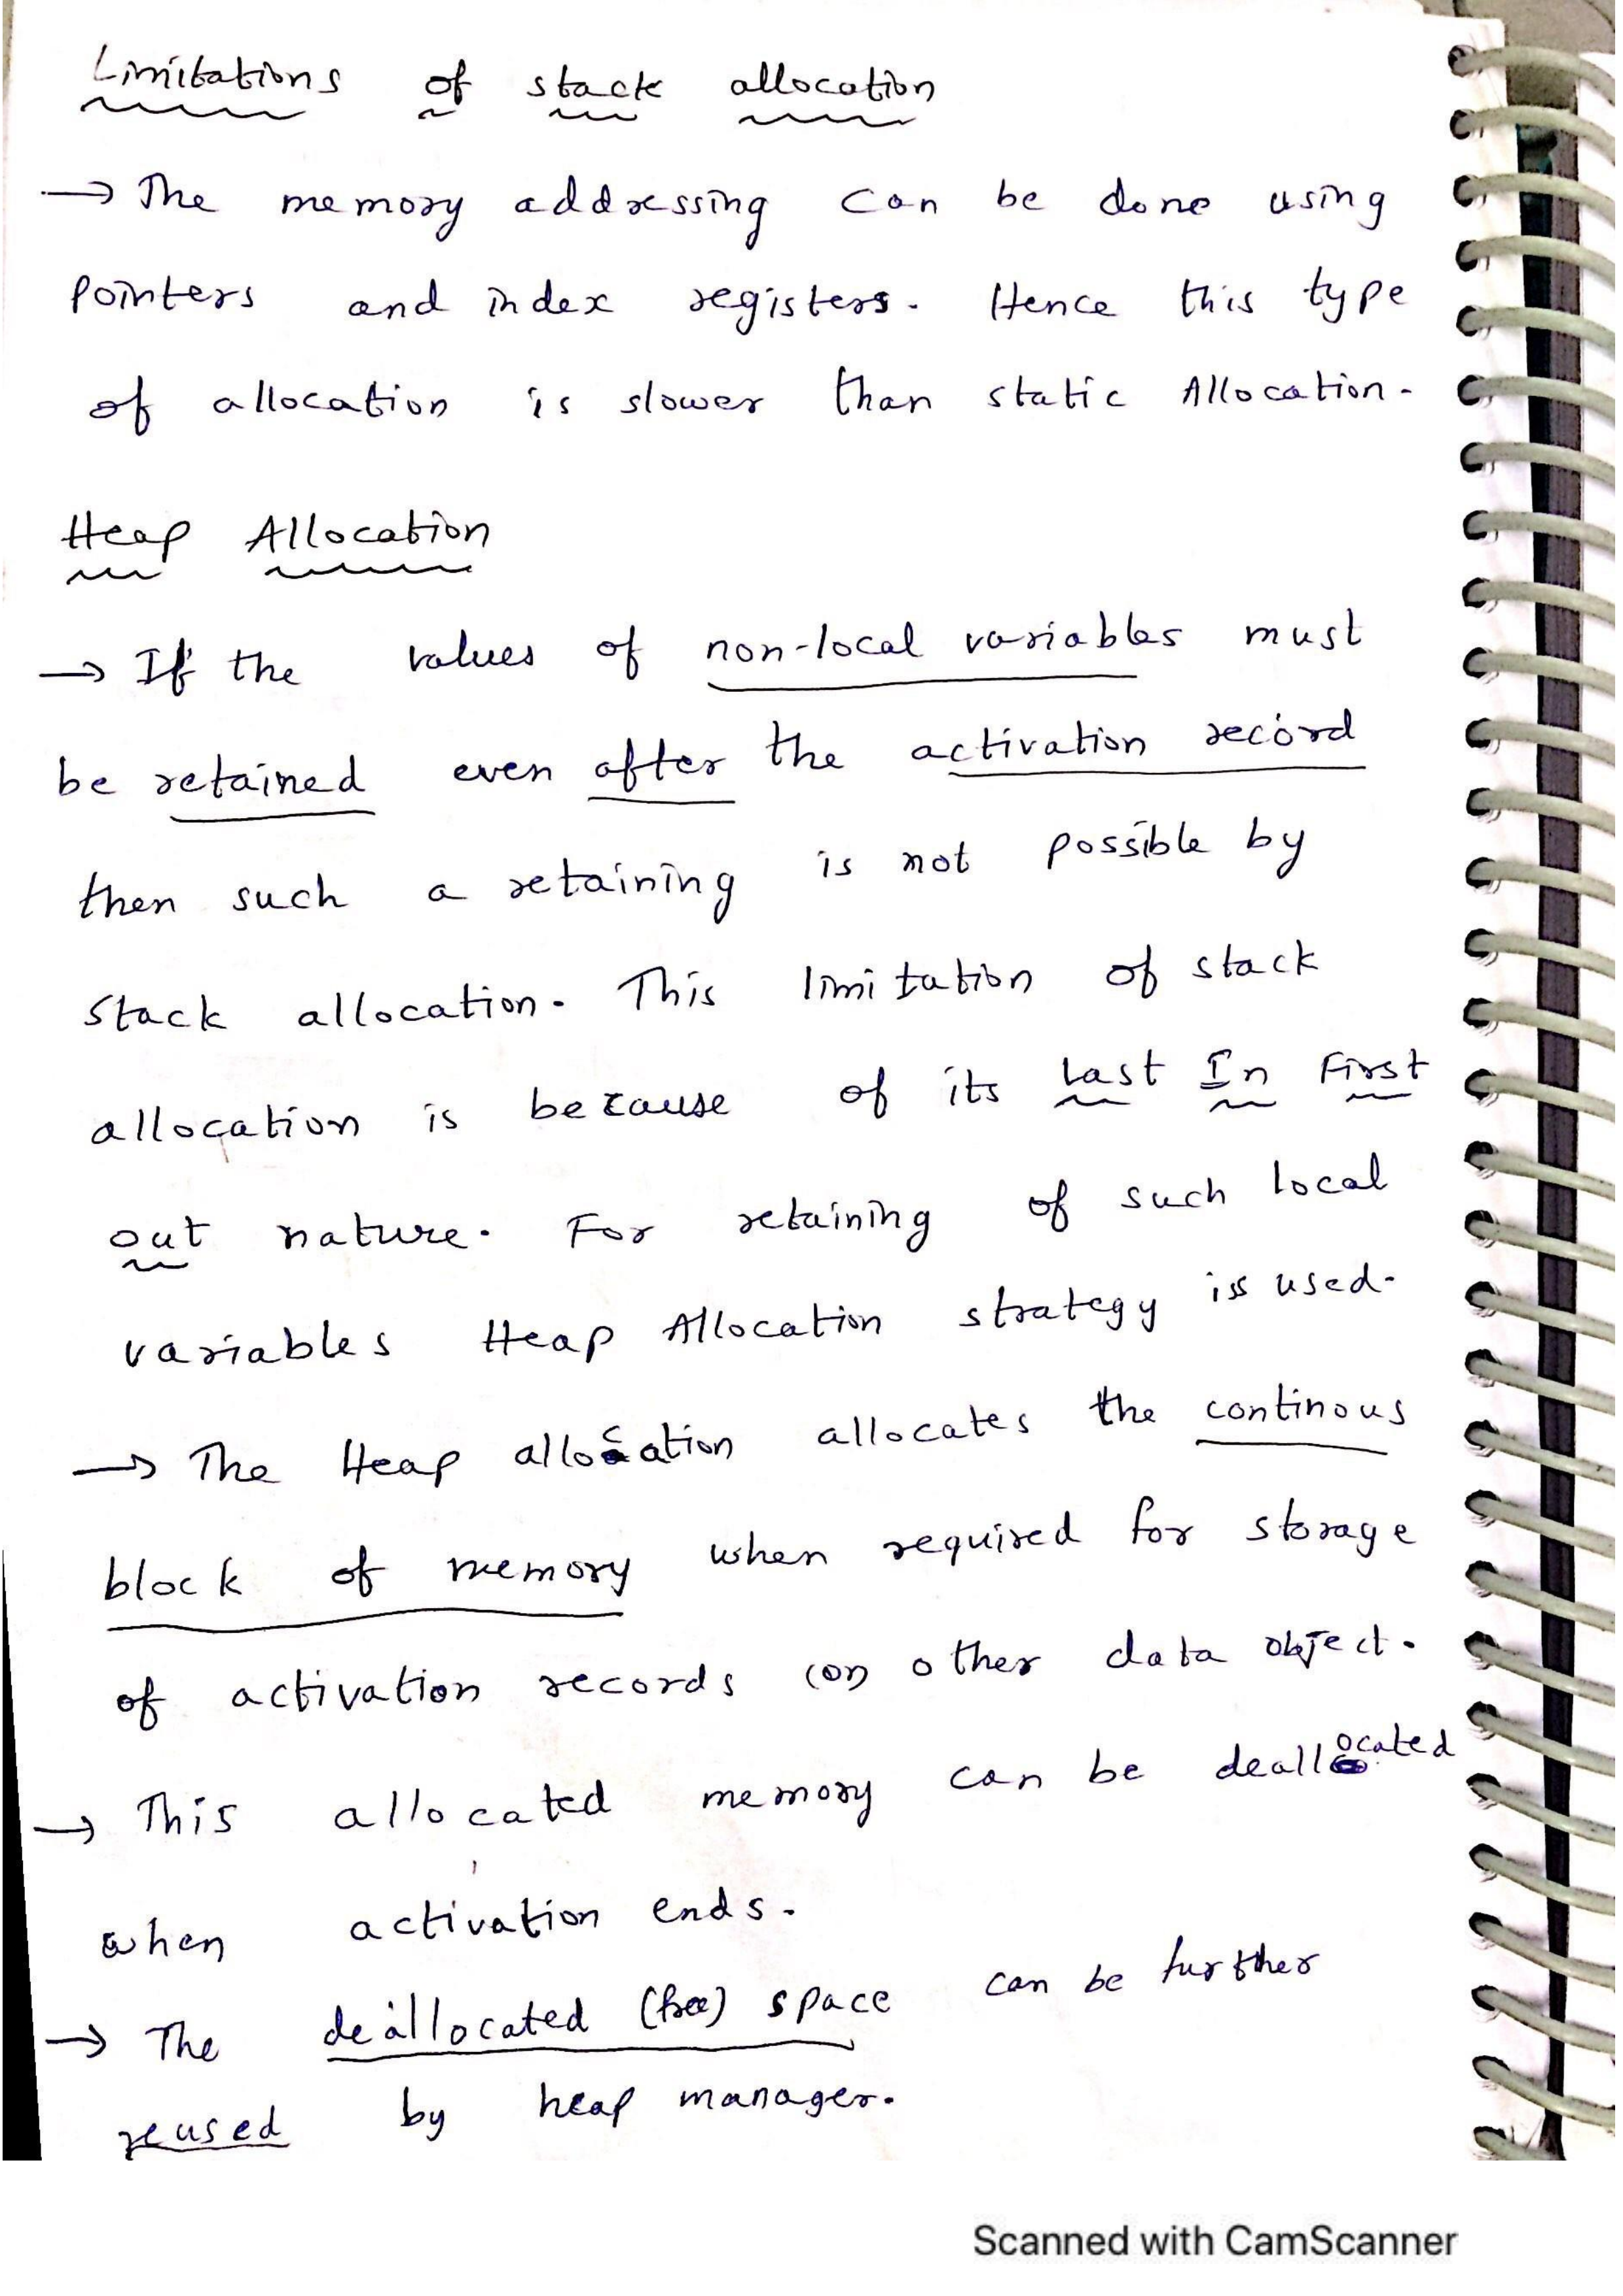 Limitations of stack allocation
→ The memory addressing can be done using
pointers and index registers. Hence this type
of allocation is slower than static Allocation.
Heap Allocation
→ If the values of non-local variables must
be retained even after the activation record
then such a retaining is not possible by
stack allocation. This limitation of stack
allocation is because of its Last In First
out nature. For retaining of such local
variables Heap Allocation strategy is used.
→ The Heap allocation allocates the continous
block of memory when required for storage
of activation records (or) other data object.
→ This allocated memory can be deallocated
when activation ends.
→ The deallocated (free) space can be further
reused by heap manager.
Scanned with CamScanner